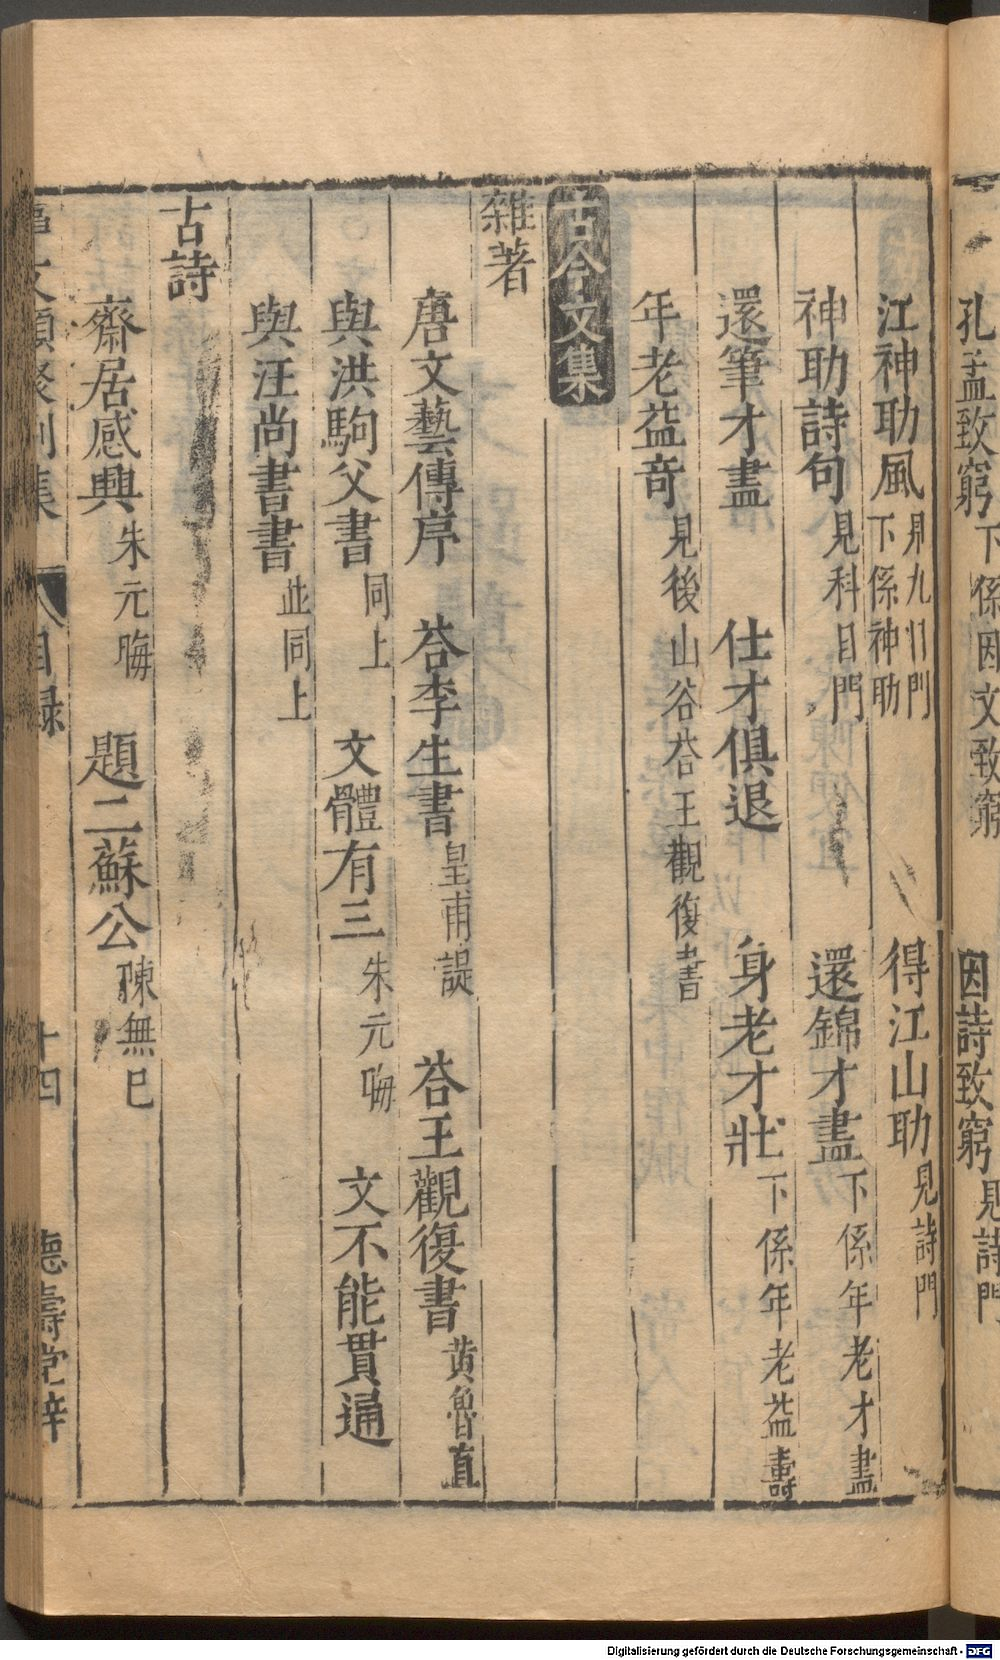 孔孟致窮下係因文致窮　因詩致窮見詩門
江神助風見九日門下係神助　得江山助見詩門
神助詩句見科目門　還錦才盡下係年老才盡
還筆才盡　仕才俱退　身老才壯下係年老益壽
年老益竒見後山谷荅王觀復書
古今文集
雜著
唐文藝傳序　荅李生書皇甫諟　荅王觀復書黄魯直
與洪駒父書同上　文體有三朱元晦　文不能貫通
與汪尚書書並同上
古詩
齋居感興朱元晦　題二蘇公陳無已
事文類聚别集　目録　十四　德壽堂梓
Digitalisierung gefördert durch die Deutsche Forschungsgemeinschaft - DFG